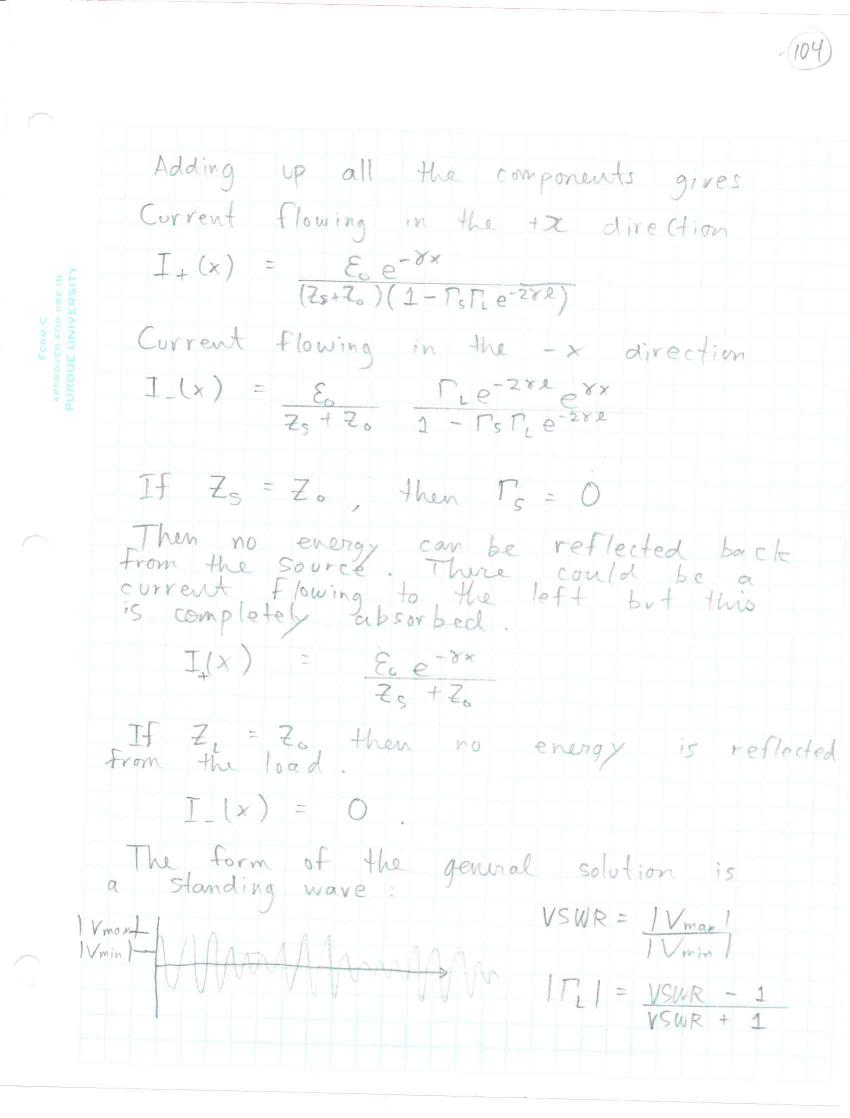 104
FORM C
APPROVED FOR USE IN
PURDUE UNIVERSITY
Adding up all the components gives
Current flowing in the +x direction
I₊(x) = ℰ₀ e^(-γx) / ((Zs+Z₀)(1 - ΓsΓL e^(-2γℓ)))
Current flowing in the -x direction
I₋(x) = ℰ₀ / (Zs + Z₀) ΓL e^(-2γℓ) e^(γx) / (1 - Γs ΓL e^(-2γℓ))
If Zs = Z₀, then Γs = 0
Then no energy can be reflected back
from the source. There could be a
current flowing to the left but this
is completely absorbed.
I₊(x) = ℰ₀ e^(-γx) / (Zs + Z₀)
If ZL = Z₀ then no energy is reflected
from the load.
I₋(x) = 0.
The form of the general solution is
a standing wave:
|Vmax|
|Vmin|
VSWR = |Vmax| / |Vmin|
|ΓL| = (VSWR - 1) / (VSWR + 1)